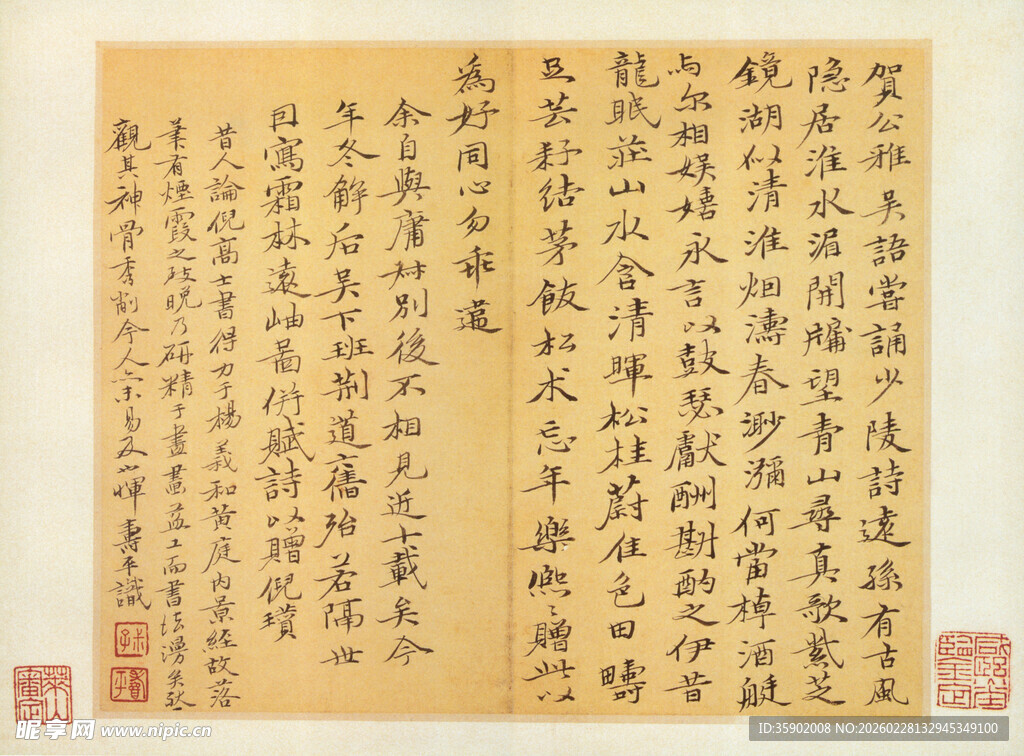 賀公雅吳語嘗誦少陵詩遠孫有古風
隐居淮水湄開牖望青山尋真歌紫芝
鏡湖似清淮烟濤春渺瀰何當棹酒艇
与尔相娱嬉永言以鼓瑟獻酬斟酌之伊昔
龍眠莊山水含清暉松桂蔚佳色田疇
且芸耔結茅飯松术忘年樂熙〻贈此以
為好同心勿乖違
余自與庸叔別後不相見近十載矣今
年冬解后吴下班荆道舊殆若隔世
因寫霜林遠岫啚併賦詩以贈倪瓚
昔人論倪高士書得力于楊義和黄庭内景經故落
筆有煙霞之致晚乃研精于畫畫益工而書法漫矣然
觀其神骨秀削今人未易及也惲壽平識
叔子
壽平
昵享网 www.nipic.cn
ID:35902008 NO:20260228132945349100